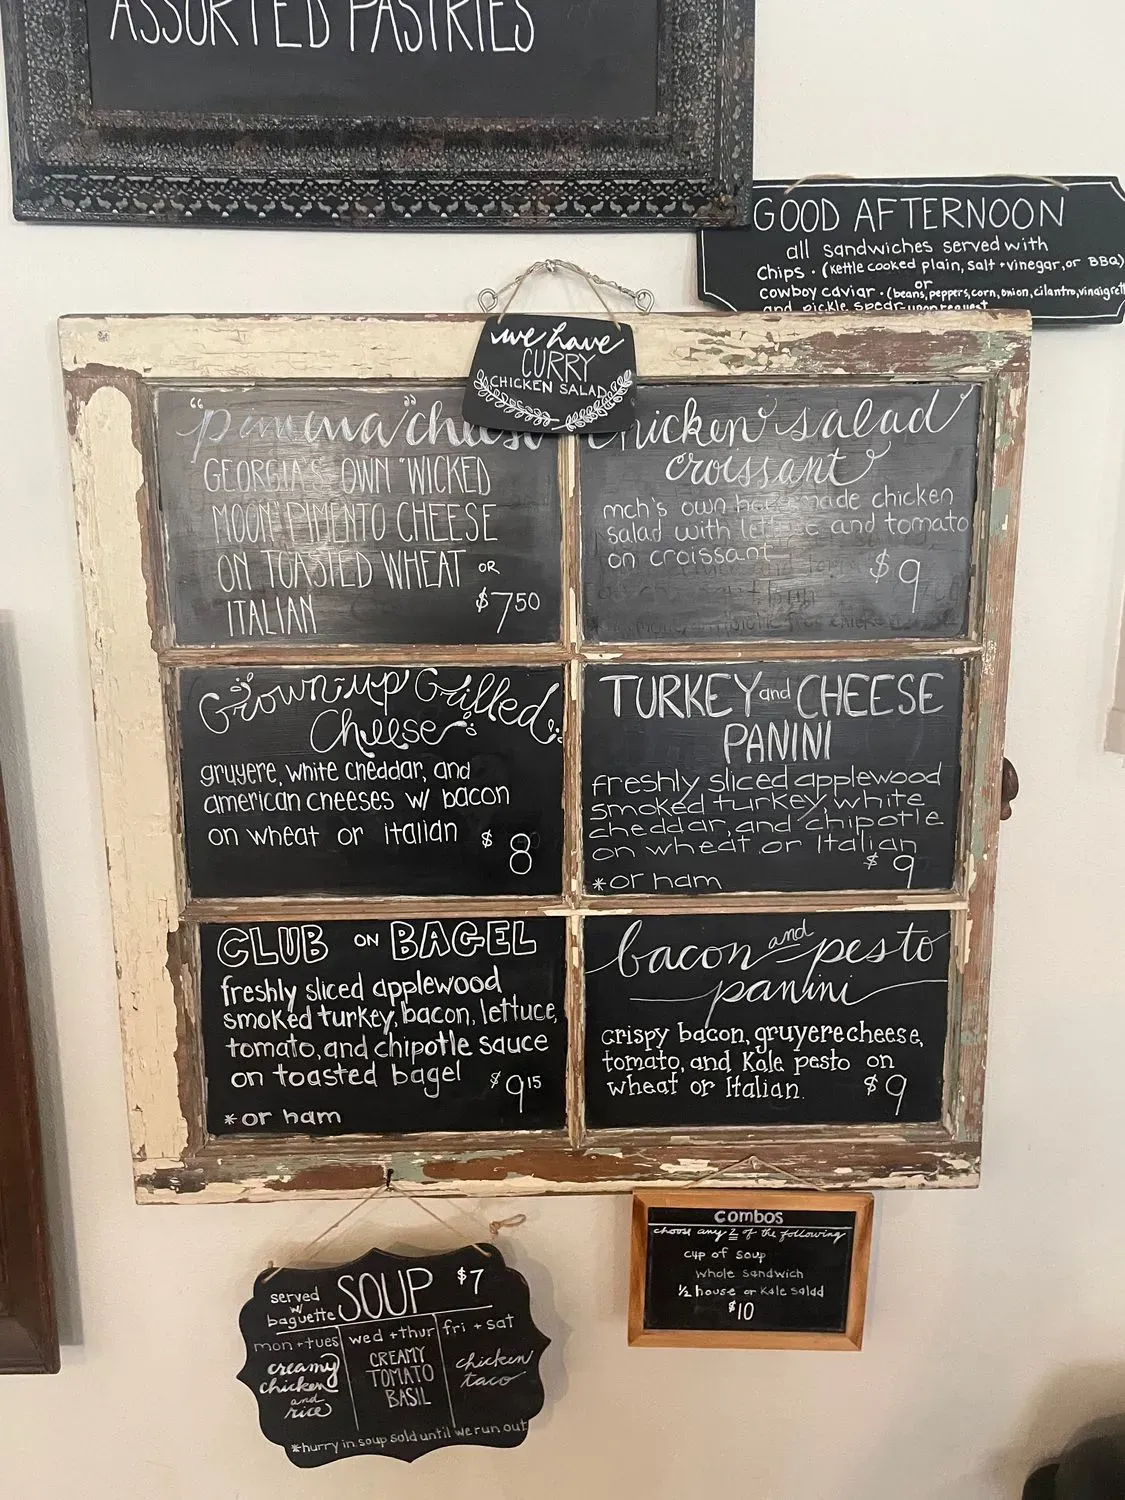 ASSORTED PASTRIES
GOOD AFTERNOON
all sandwiches served with
chips • (kettle cooked plain, salt + vinegar, or BBQ)
or
cowboy caviar • (beans, peppers, corn, onion, cilantro, vinaigret
and pickle spear - upon request
we have
CURRY
CHICKEN SALAD
"pimena" cheese
GEORGIA'S OWN "WICKED
MOON" PIMENTO CHEESE
ON TOASTED WHEAT OR
ITALIAN
$7 50
chicken salad
croissant
mch's own housemade chicken
salad with lettuce and tomato
on croissant
$9
Grown-up Grilled
Cheese
gruyere, white cheddar, and
american cheeses w/ bacon
on wheat or italian $8
TURKEY and CHEESE
PANINI
freshly sliced applewood
smoked turkey, white
cheddar, and chipotle
on wheat or Italian
$9
*or ham
CLUB ON BAGEL
freshly sliced applewood
smoked turkey, bacon, lettuce,
tomato, and chipotle sauce
on toasted bagel $9 15
*or ham
bacon and pesto
panini
crispy bacon, gruyere cheese,
tomato, and kale pesto on
wheat or Italian. $9
served
w/
baguette
SOUP $7
mon + tues
creamy
chicken
and
rice
wed + thur
CREAMY
TOMATO
BASIL
fri + sat
chicken
taco
*hurry in soup sold until we run out
combos
choose any 2 of the following
cup of soup
whole sandwich
1/2 house or kale salad
$10